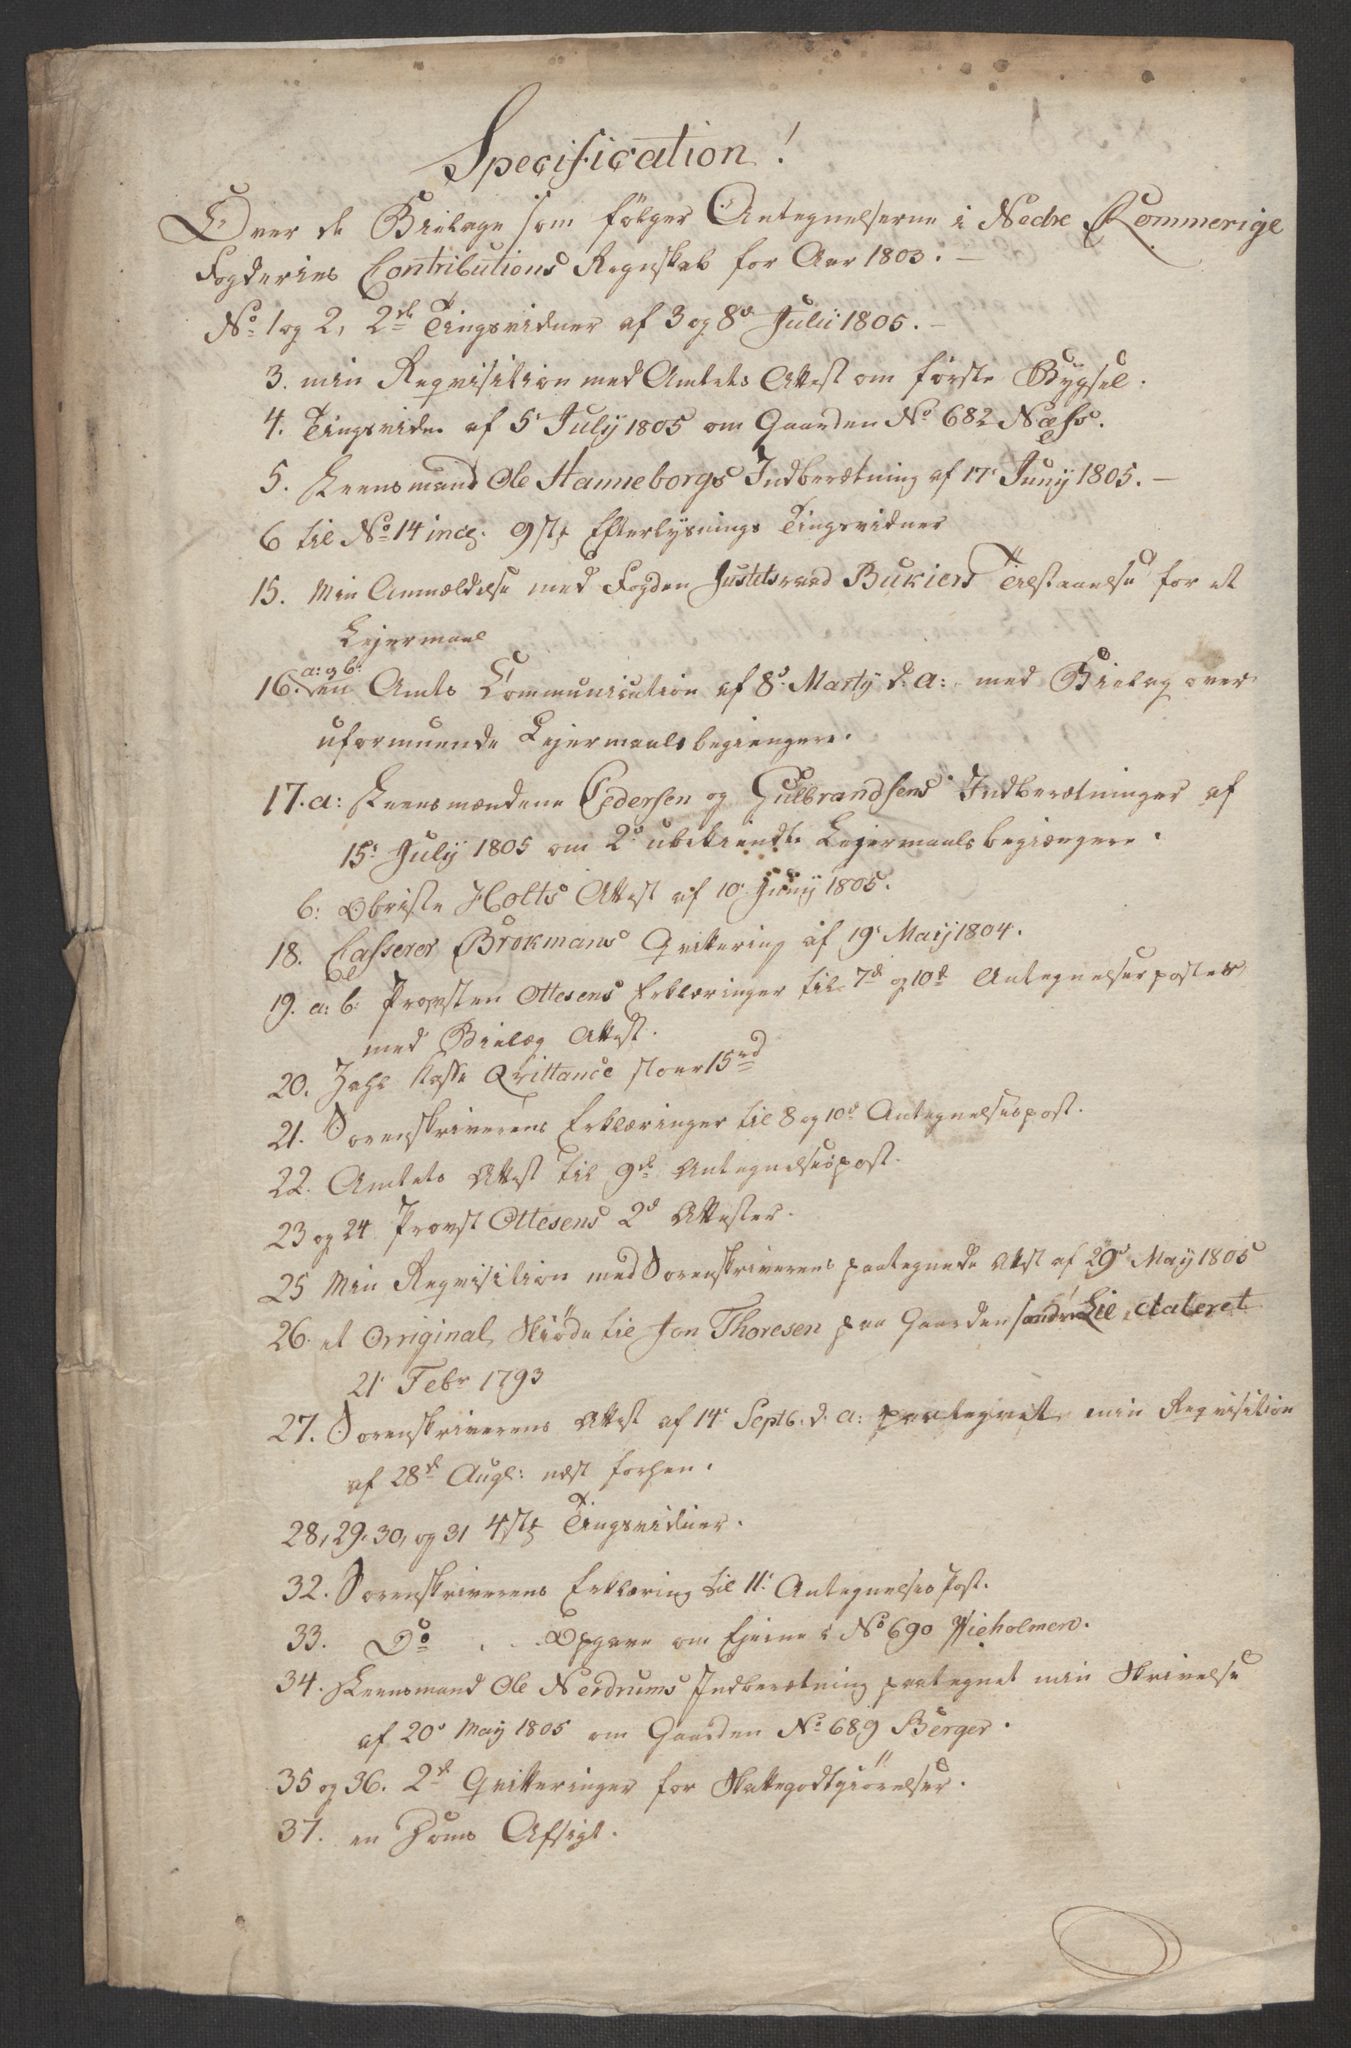 Specification!
Over de Bielage som følger Antegnelserne i Nedre Rommerige
Fogderies Contributions Regnskab for Aar 1803. —
No 1 og 2, 2de Tingsvidner af 3 og 8de Julii 1805. —
3. min Reqvisition med Amtets Attest om første Bygsel.
4. Tingsvidne af 5t July 1805 om Gaarden No 682 Næss.
5. Leensmand Ole Hanneborgs Indberetning af 17t Juny 1805. —
6 til No 14 incl. 9 stk Efterlysnings Tingsvidner
15. Min Anmældelse med Fogden Justitsraad Bukiers Tilstaaelse for et
Lejermaal
a: og b:
16. En Amts Communication af 8de Martij d. a: med Bielag over
uformuende Lejermaalsbegiængere.
17. a: Leensmændene Pedersen og Gulbrandsens Indberetninger af
15t July 1805 om 2de ubekiendte Lejermaalsbegiængere.
b: Obriste Holts Attest af 10 Juny 1805.
18. Casserer Brokmans Qvittering af 19t Maij 1804.
19. a: b: Provsten Ottesens Erklæringer til 7de og 10de Antegnelsesposter
med Bielag Attest.
20. Zahl Kasse Qvittance stoer 15rd
21. Sorenskriverens Erklæringer til 8 og 10de Antegnelsespost.
22. Amtets Attest til 9de Antegnelsespost.
23 og 24 Provst Ottesens 2de Attester.
25 Min Reqvisition med Sorenskriverens paategnede Attest af 29de May 1805
26. et Orriginal Skiøde til Jon Thoresen paa Gaarden søndre Lie, dateret
21t Febr 1793
27. Sorenskriverens Attest af 14t Septb. d. a: paategnet min Reqvisition
af 28de Augt: næst forhen.
28, 29, 30, og 31 4 stk Tingsvidner.
32. Sorenskriverens Erklæring til 11t Antegnelses Post.
33. Do . . Opgave om Ejerne i No 690 Wieholmen.
34. Leensmand Ole Nerdrums Indberetning paategnet min Skrivelse
af 20de May 1805 om Gaarden No 689 Berger.
35 og 36. 2de Qvitteringer for Skattegodtgiørelser.
37. en Doms Afsigt.